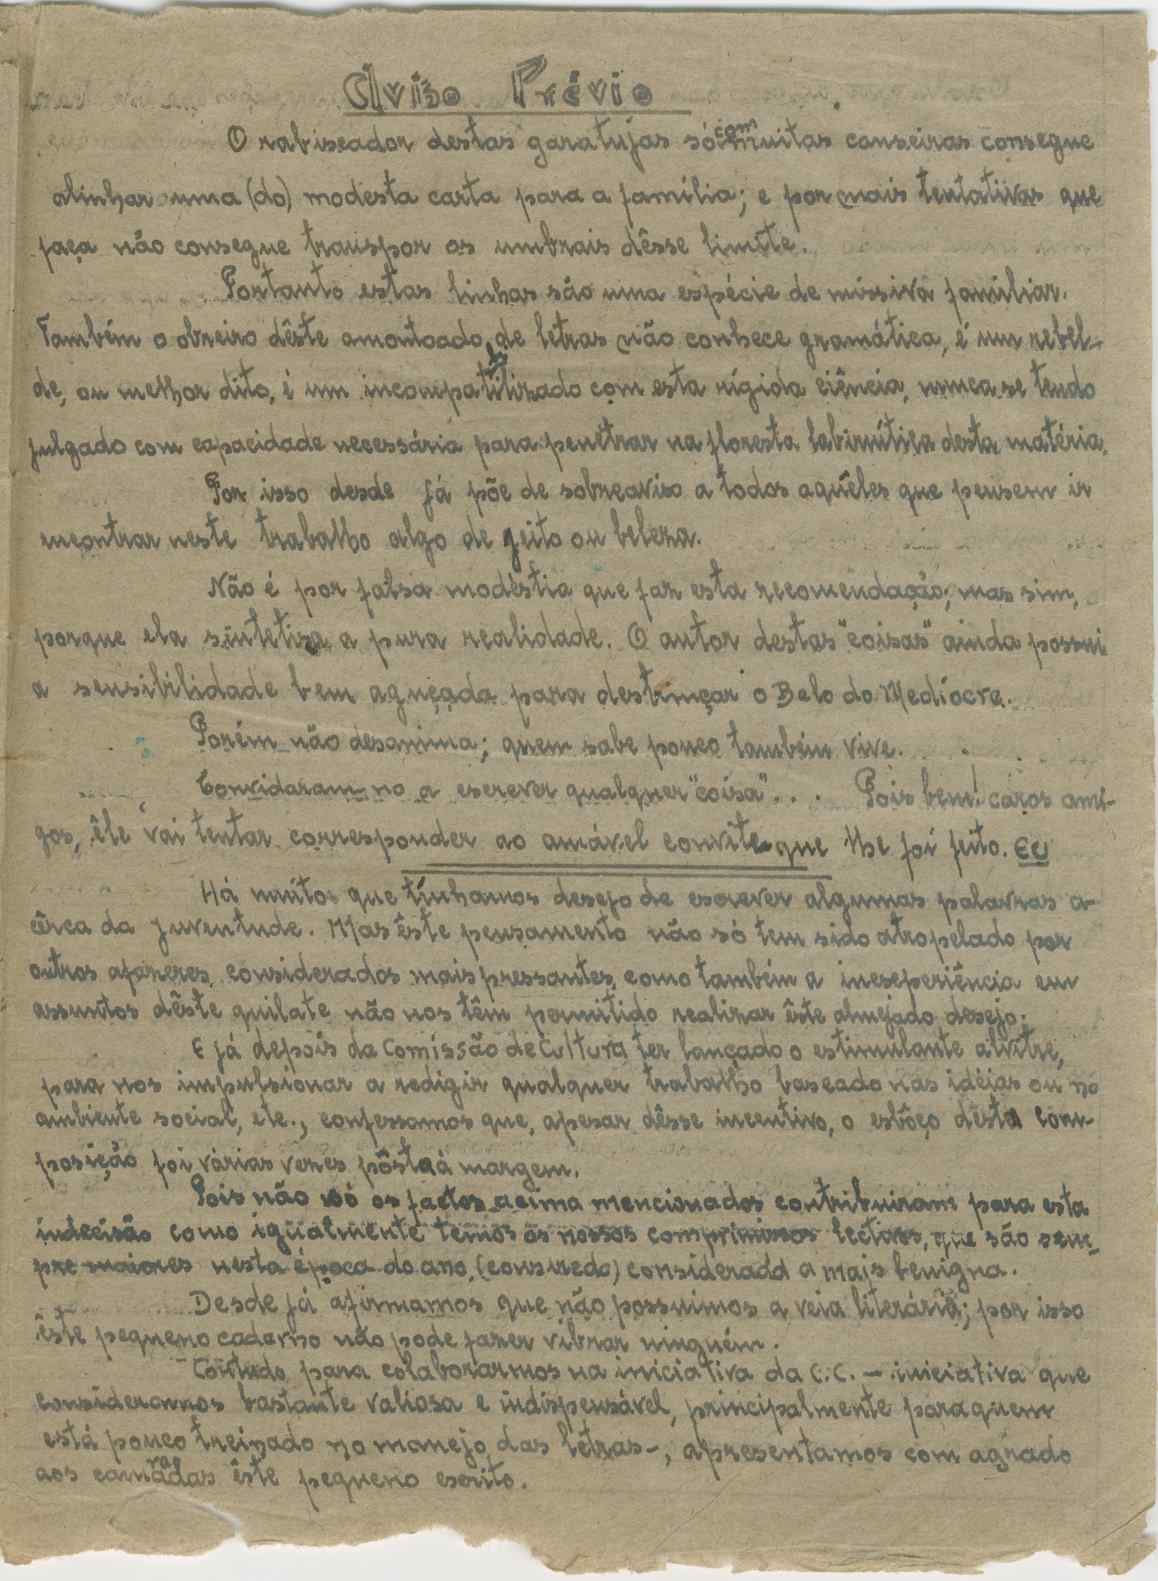 Aviso Prévio
O rabiscador destas garatujas só com muitas canseiras consegue
alinhar uma (do) modesta carta para a família; e por mais tentativas que
faça não consegue transpor os umbrais dêsse limíte.
Portanto estas linhas são uma espécie de missiva familiar.
Também o obreiro dêste amontoado de letras não conhece gramática, é um rebel-
de, ou melhor dito, é um incompatibilizado com esta rígida ciência, nunca se tendo
julgado com capacidade necessária para penetrar na floresta labiríntica desta matéria.
Por isso desde já põe de sobreaviso a todos aquêles que pensem ir
encontrar neste trabalho algo de geito ou beleza.
Não é por falsa modéstia que faz esta recomendação; mas sim,
porque ela sintetiza a pura realidade. O autor destas "coisas" ainda possui
a sensibilidade bem aguçada para destrinçar o Belo do Medíocre.
Porém não desanima; quem sabe pouco também vive.
Convidaram-no a escrever qualquer "coisa"... Pois bem! caros ami-
gos, êle vai tentar corresponder ao amável convite que lhe foi feito. EU
Há muito que tínhamos desejo de escrever algumas palavras a-
cêrca da juventude. Mas êste pensamento não só tem sido atropelado por
outros afazeres, considerados mais pressantes, como também a inexperiência em
assuntos dêste quilate não nos têm permitido realizar êste almejado desejo.
E já depois da Comissão de Cultura ter lançado o estimulante alvitre,
para nos impulsionar a redigir qualquer trabalho baseado nas idéias ou no
ambiente social, etc., confessamos que, apesar dêsse incentivo, o esbôço desta com-
posição foi várias vezes pôsta à margem.
Pois não só os factos acima mencionados contribuiram para esta
indecisão como igualmente temos os nossos compromissos lectivos, que são sem-
pre maiores nesta época do ano, (consuedo) considerada a mais benigna.
Desde já afirmamos que não possuimos a veia literária; por isso
êste pequeno caderno não pode fazer vibrar ninguém.
Contudo para colaborarmos na iniciativa da C.C. — iniciativa que
consideramos bastante valiosa e indispensável, principalmente para quem
está pouco treinado no manejo das letras—, apresentamos com agrado
aos camaradas êste pequeno escrito.